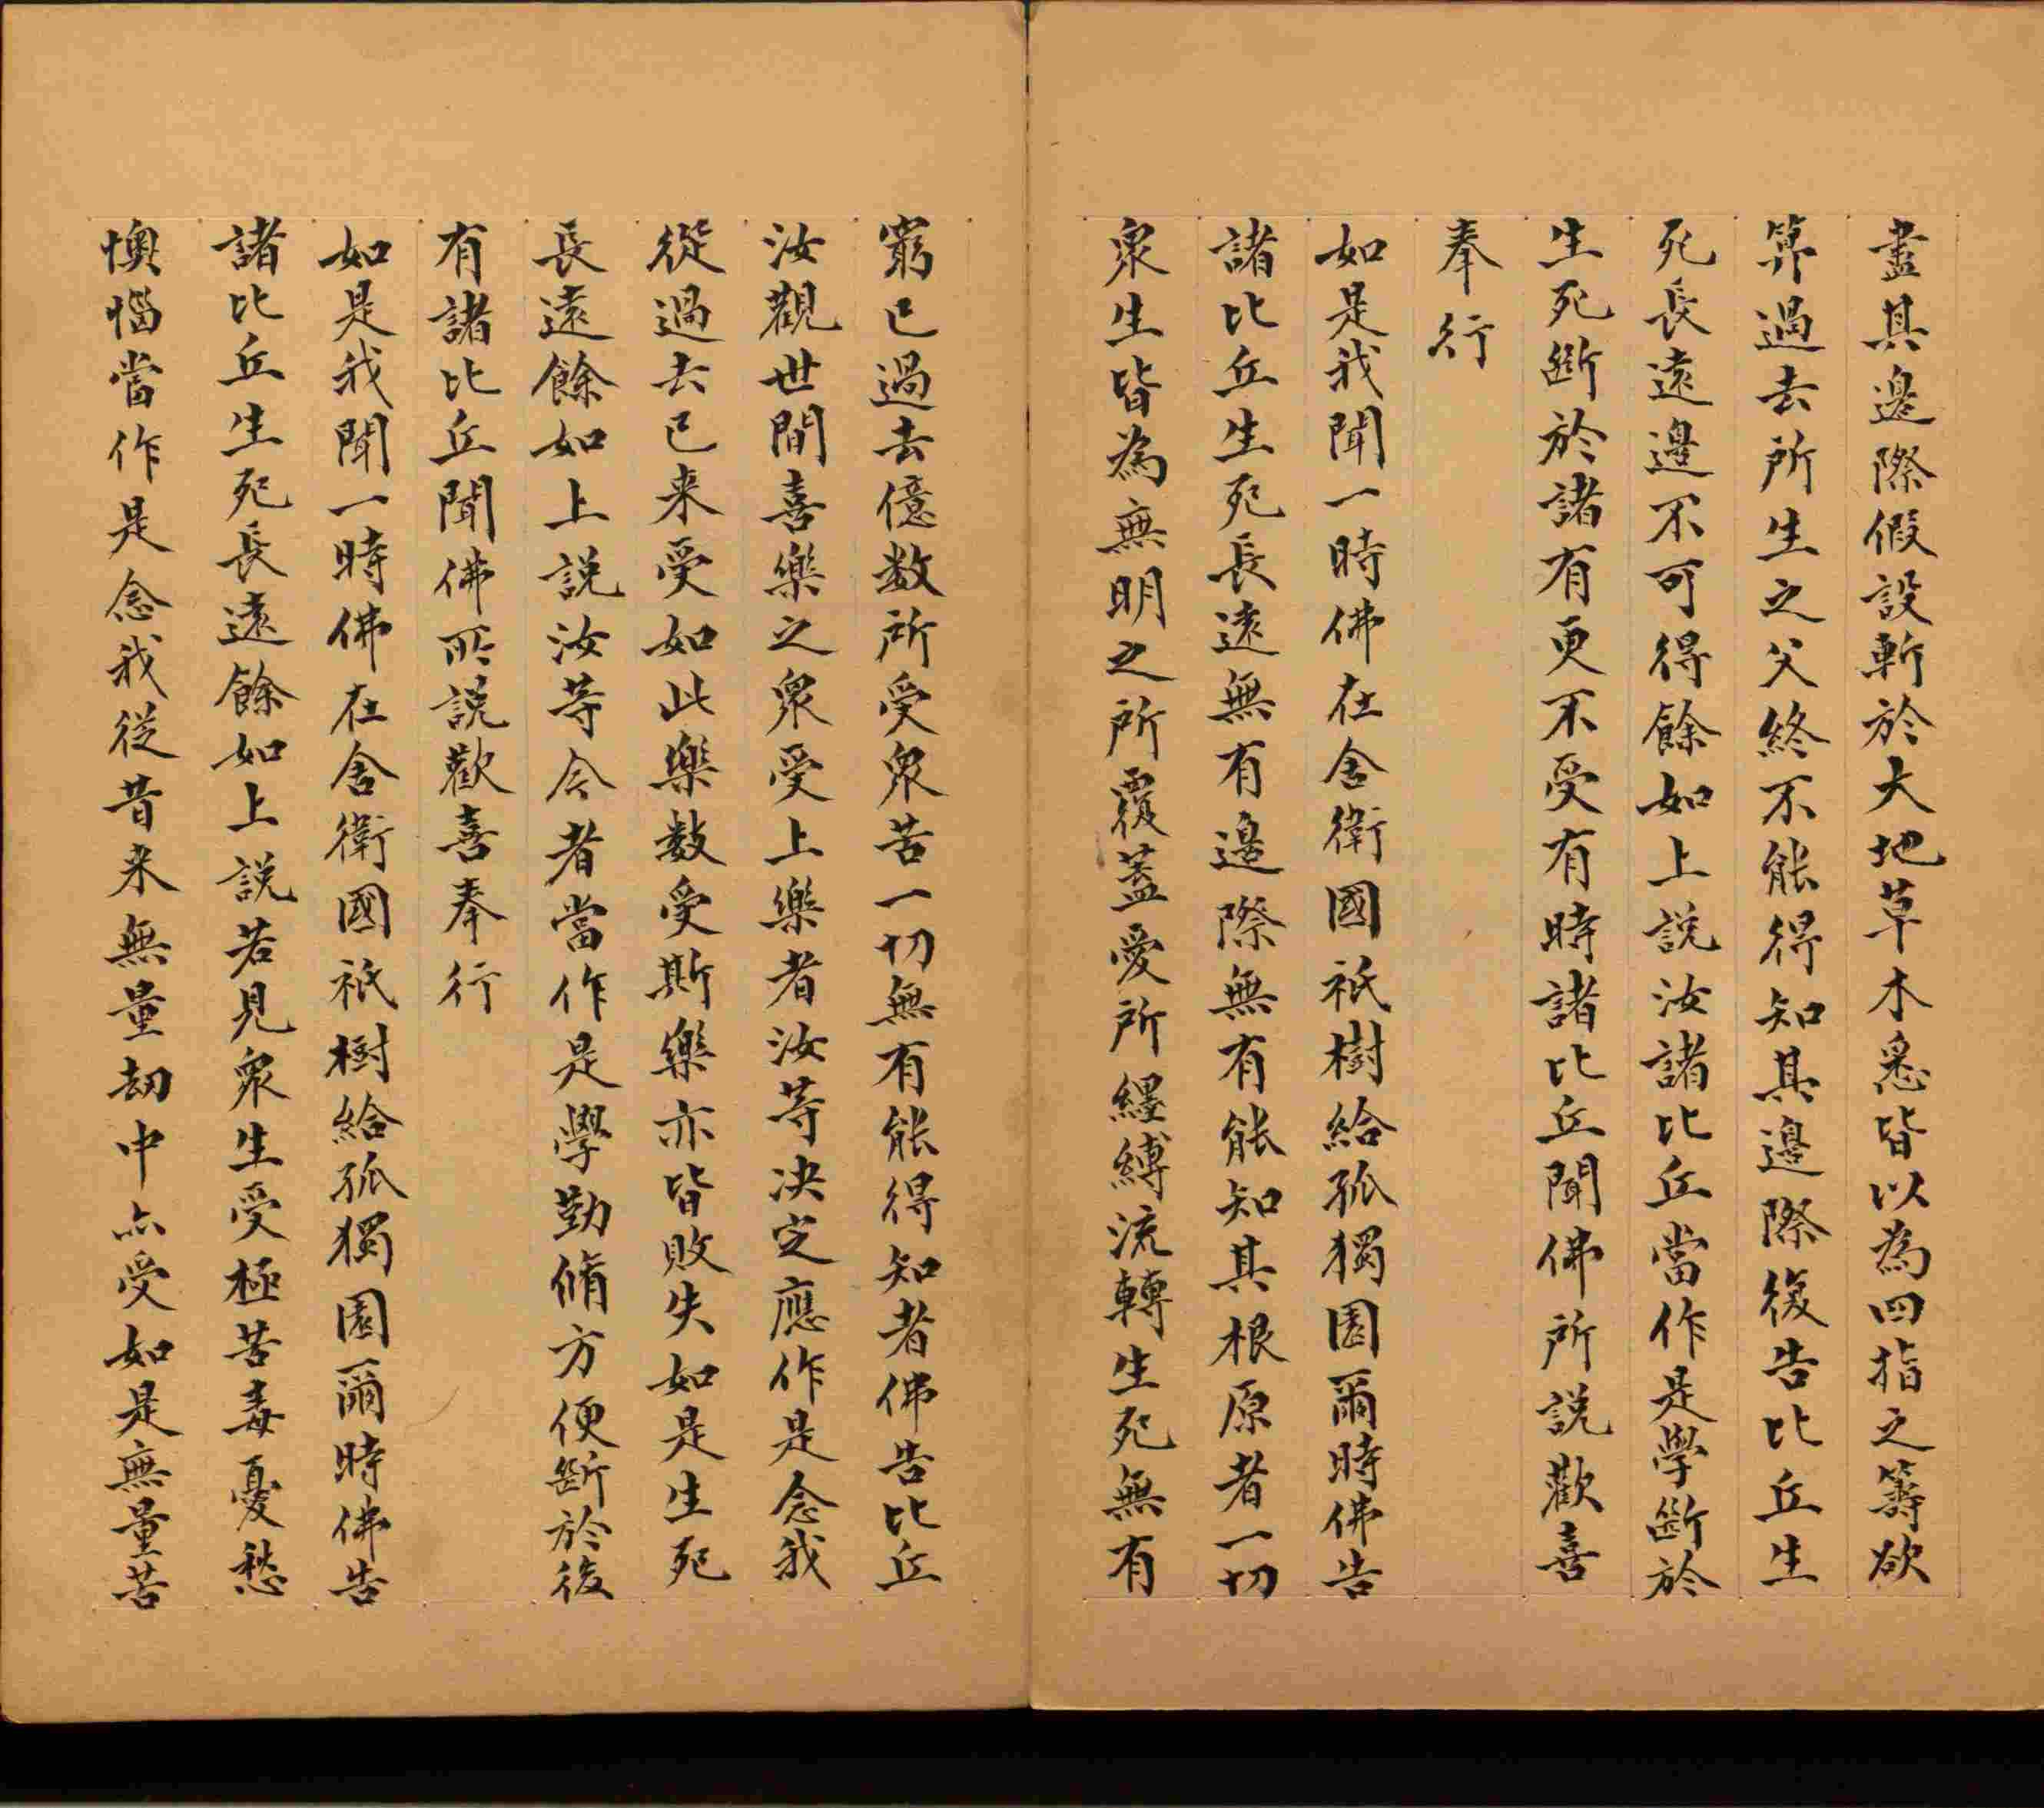 盡其邊際假設斬於大地草木悉皆以為四指之籌欲
筭過去所生之父終不能得知其邊際復告比丘生
死長遠邊不可得餘如上說汝諸比丘當作是學斷於
生死斷於諸有更不受有時諸比丘聞佛所說歡喜
奉行
如是我聞一時佛在舍衛國祇樹給孤獨園爾時佛告
諸比丘生死長遠無有邊際無有能知其根原者一切
衆生皆為無明之所覆蓋愛所纏縛流轉生死無有
窮已過去億数所受衆苦一切無有能得知者佛告比丘
汝觀世間喜樂之衆受上樂者汝等決定應作是念我
從過去已来受如此樂数受斯樂亦皆敗失如是生死
長遠餘如上說汝等今者當作是學勤脩方便斷於後
有諸比丘聞佛所說歡喜奉行
如是我聞一時佛在舍衛國祇樹給孤獨園爾時佛告
諸比丘生死長遠餘如上說若見衆生受極苦毒憂愁
懊惱當作是念我從昔来無量劫中亦受如是無量苦